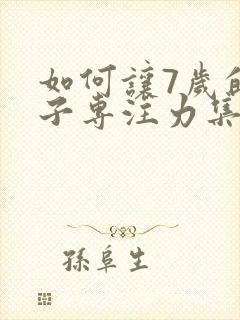 如何讓7歲的
子專注力集
孫阜生